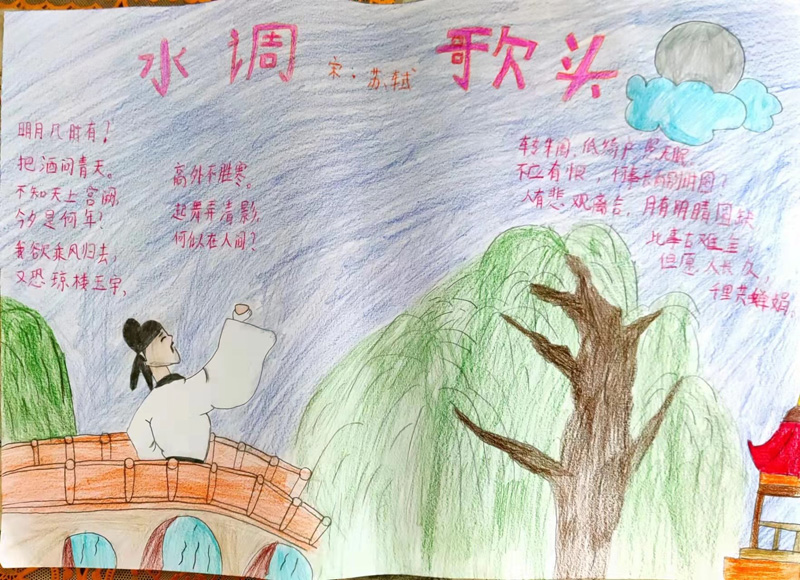 水调歌头
宋、苏轼
明月几时有？
把酒问青天。
不知天上宫阙，
今夕是何年？
我欲乘风归去，
又恐琼楼玉宇，
高处不胜寒。
起舞弄清影，
何似在人间？
转朱阁，低绮户，照无眠。
不应有恨，何事长向别时圆？
人有悲欢离合，月有阴晴圆缺
此事古难全，
但愿人长久，
千里共婵娟。